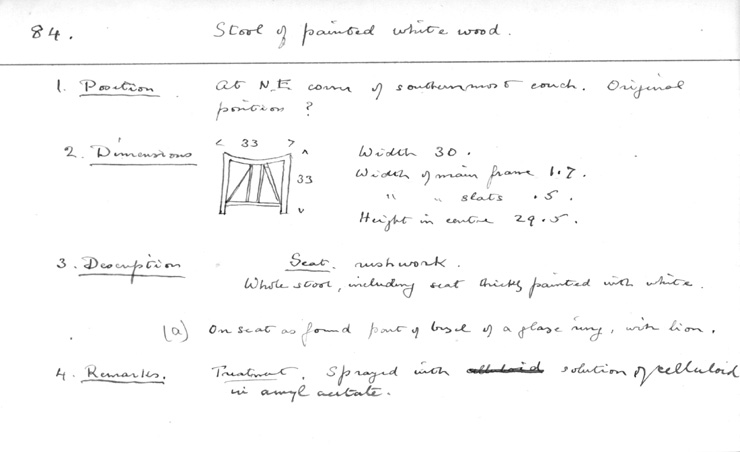 84. Stool of painted white wood.
1. Position At N.E corner of southernmost couch. Original
position ?
2. Dimensions < 33 > ^ Width 30.
33 Width of main frame 1.7.
" " slats .5.
v Height in centre 29.5.
3. Description Seat. rushwork.
Whole stool, including seat thickly painted with white.
(a) On seat as found part of bezel of a glaze ring, with lion.
4. Remarks. Treatment. Sprayed with celluloid solution of celluloid
in amyl acetate.